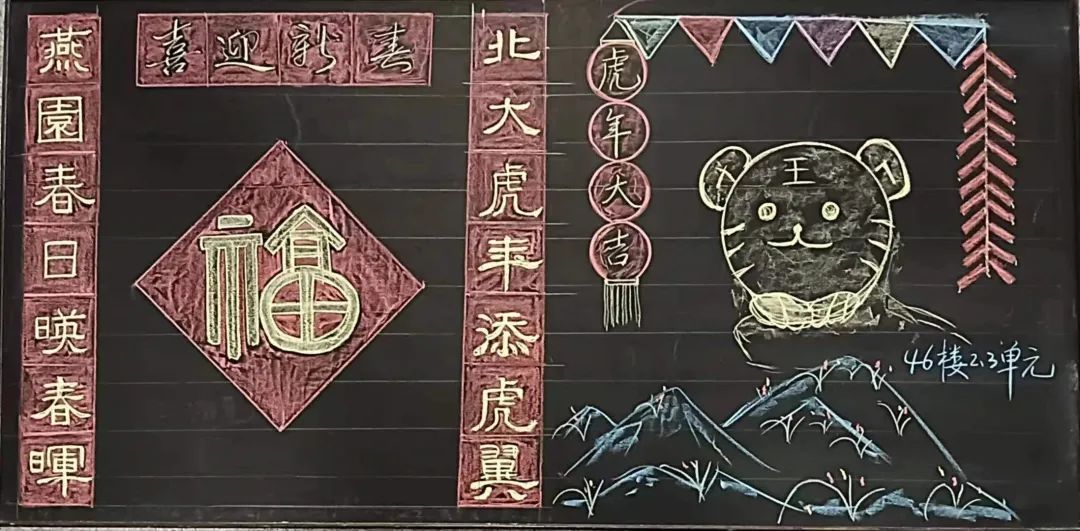 喜迎新春
燕園春日暎春暉
北大虎年添虎翼
福
虎年大吉
王
46楼2.3单元